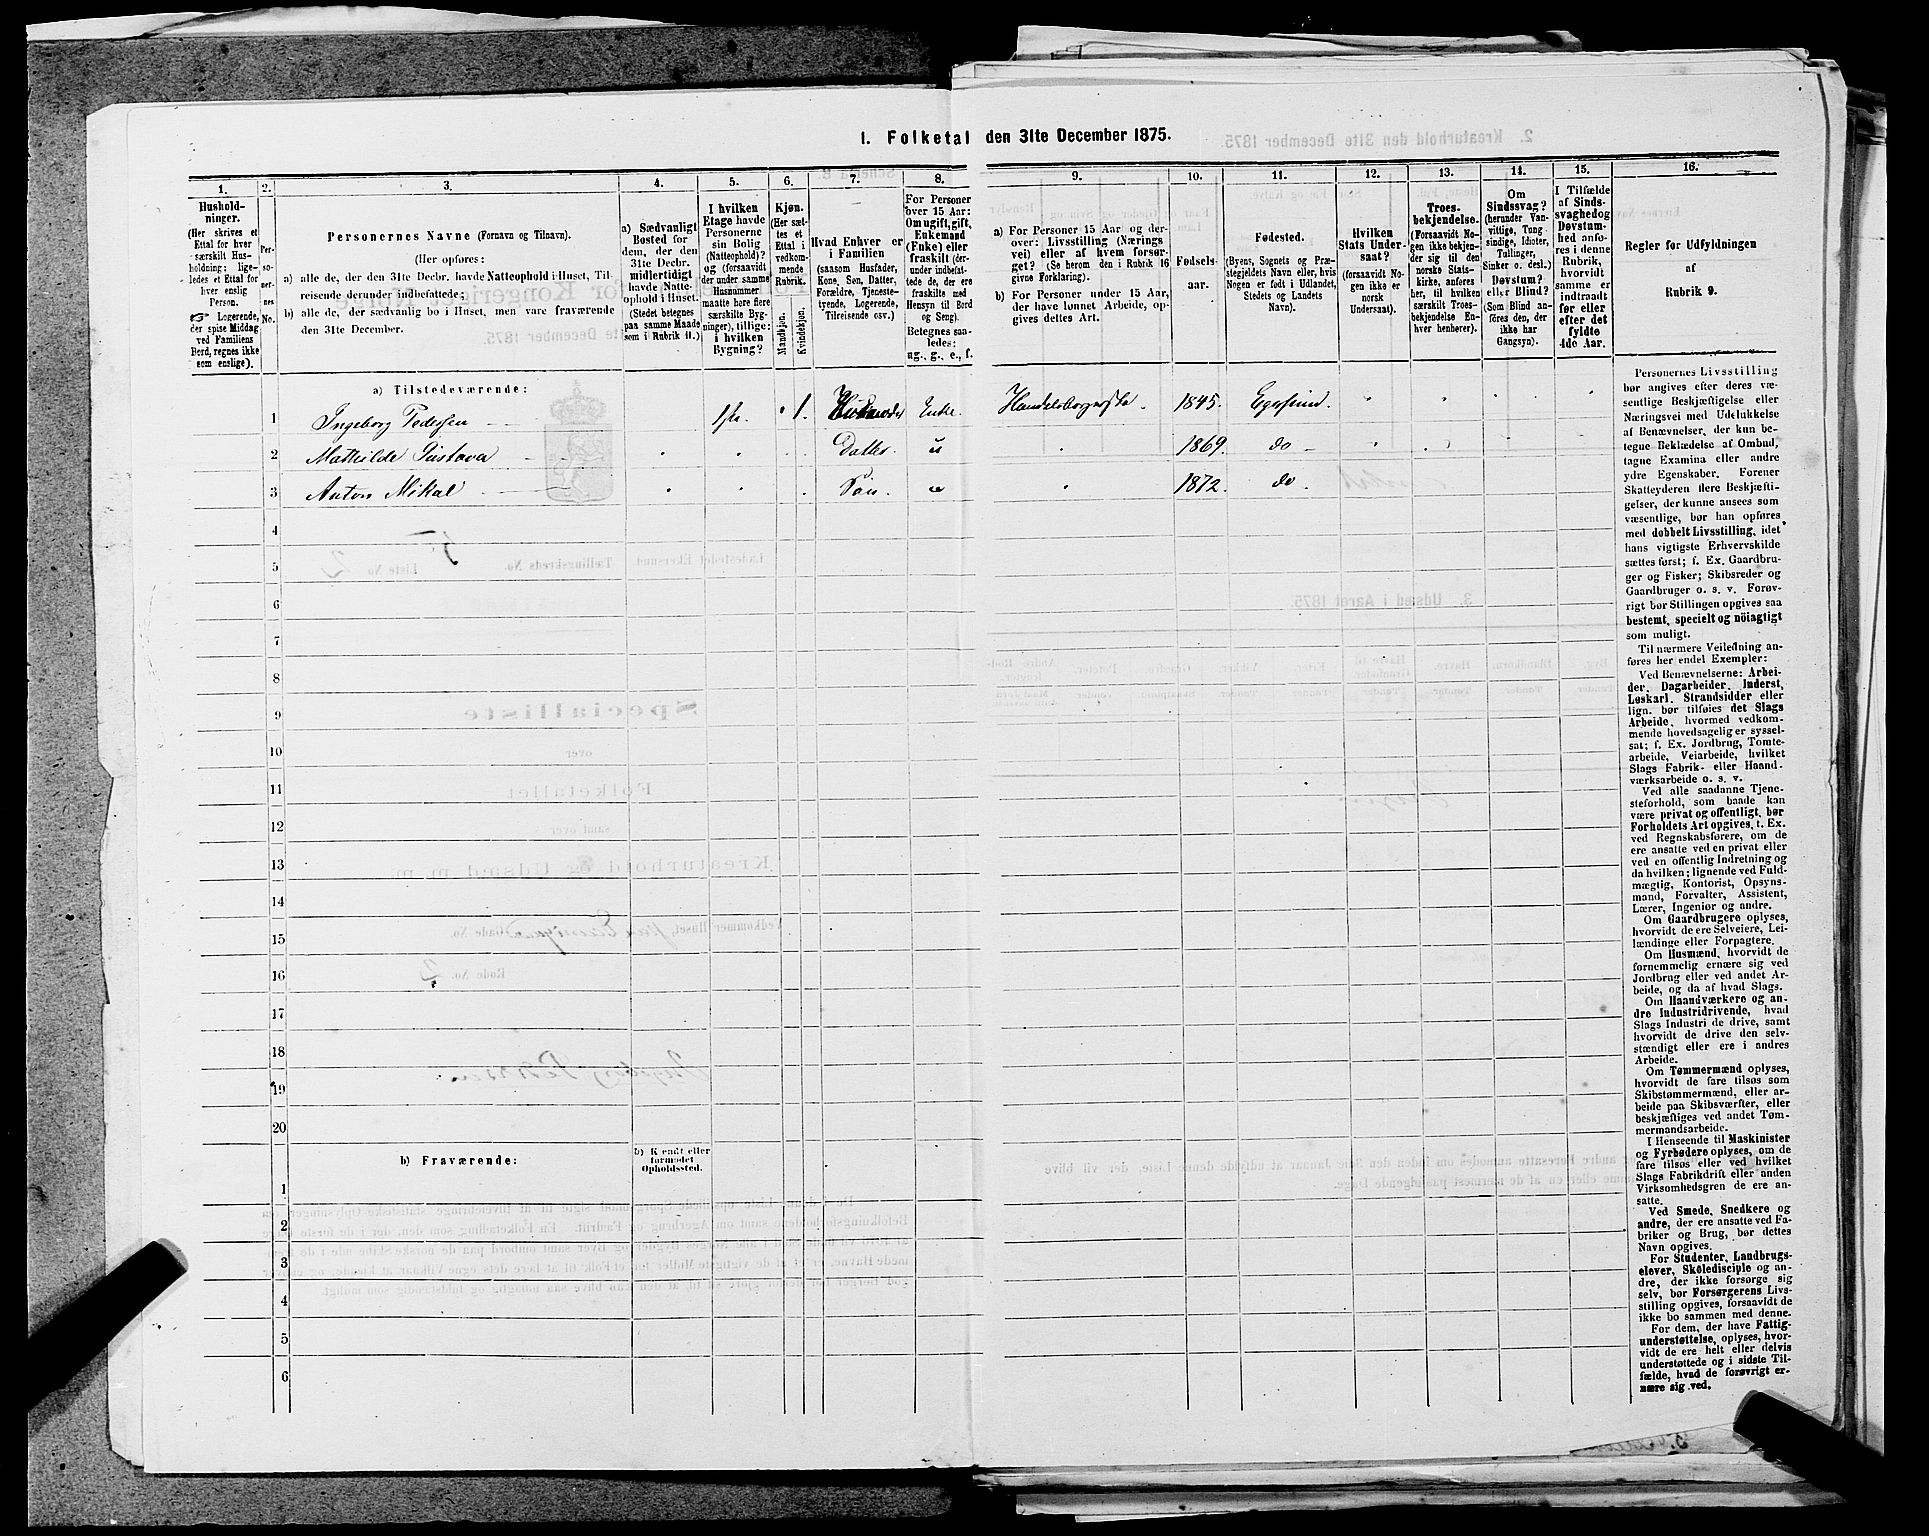 1. Folketal den 31te December 1875.
1. 2. 3. 4. 5. 6. 7. 8. 9. 10. 11. 12. 13. 14. 15. 16.
Hushold-
ninger.
(Her skrives et
Ettal for hver
særskilt Hus-
holdning; lige-
ledes et Ettal for
hver enslig
Person.
Logerende,
der spise Middag
ved Familiens
Bord, regnes ikke
som enslige).
Per-
so-
ner-
nes
No.
Personernes Navne (Fornavn og Tilnavn).
(Her opføres:
a) alle de, der den 31te Decbr. havde Natteophold i Huset, Til-
reisende derunder indbefattede;
b) alle de, der sædvanlig bo i Huset, men vare fraværende
den 31te December.
a) Sædvanligt
Bosted for
dem, der den
31te Decbr.
midlertidigt
havde Natte-
ophold i Huset.
(Stedet betegnes
paa samme Maade
som i Rubrik 11.)
I hvilken
Etage havde
Personerne
sin Bolig
(Natteophold)?
og (forsaavidt
der under samme
Husnummer
maatte høre flere
særskilte Byg-
ninger), tillige:
i hvilken
Bygning?
Kjøn.
(Her sæt-
tes et
Ettal i
vedkom-
mende
Rubrik.
Mandkjøn.
Kvindekjøn.
Hvad Enhver er
i Familien
(saasom Husfader,
Kone, Søn, Datter,
Forældre, Tjeneste-
tyende, Logerende,
Tilreisende osv.)
For Personer
over 15 Aar:
Om ugift, gift,
Enkemand
(Enke) eller
fraskilt (der-
under indbefat-
tede de, der ere
fraskilte med
Hensyn til Bord
og Seng).
Betegnes saa-
ledes:
ug., g., e., f.
a) For Personer 15 Aar og der-
over: Livsstilling (Nærings
vei) eller af hvem forsør-
get? (Se herom den i Rubrik 16
givne Forklaring).
b) For Personer under 15 Aar,
der have lønnet Arbeide, op-
gives dettes Art.
Fødsels-
aar.
Fødested.
(Byens, Sognets og Præ-
stegjeldets Navn eller, hvis
Nogen er født i Udlandet,
Stedets og Landets
Navn).
Hvilken
Stats Under-
saat?
(forsaavidt No-
gen ikke er
norsk
Undersaat).
Troes-
bekjendelse.
(Forsaavidt No-
gen ikke bekjen-
der sig til den
norske Stats-
kirke, anføres
her, til hvilken
særskilt Troes-
bekjendelse En-
hver henhører).
Om
Sindssvag?
(herunder Van-
vittige, Tung-
sindige, Idioter,
Tullinger,
Sinker o. desl.)
Døvstum?
eller Blind?
(Som Blind an-
føres den, der
ikke har
Gangsyn).
I Tilfælde
af Sinds-
svaghed og
Døvstum-
hed anfø-
res i denne
Rubrik,
hvorvidt
samme er
indtraadt
før eller
efter det
fyldte
4de Aar.
Regler for Udfyldningen
af
Rubrik 9.
a) Tilstedeværende:
1 Ingeborg Pedersen 1 Enke. 1845. Egersund.
2 Mathilde Gustava Datter. 1869. do
3 Anton Mikal Søn 1872. do.
4
5
6
7
8
9
10
11
12
13
14
15
16
17
18
19
20
b) Fraværende:
b) Kjendt eller
formodet
Opholdssted.
1
2
3
4
5
6
Personernes Livsstilling
bør angives efter deres væ-
sentlige Beskjæftigelse eller
Næringsvei med Udelukkelse
af Benævnelser, der kun be-
tegne Beklædelse af Ombud,
tagne Examina eller andre
ydre Egenskaber. Forener
Skatteyderen flere Beskjæfti-
gelser, der kunne ansees som
væsentlige, bør han opføres
med dobbelt Livsstilling, idet
hans vigtigste Erhvervskilde
sættes først; f. Ex. Gaardbru-
ger og Fisker; Skibsreder og
Gaardbruger o. s. v. Forøv-
rigt bør Stillingen opgives saa
bestemt, specielt og nöiagtigt
som muligt.
Til nærmere Veiledning an-
føres her endel Exempler:
Ved Benævnelserne: Arbei-
der, Dagarbeider, Inderst,
Løskarl, Strandsidder eller
lign. bør tilføies det Slags
Arbeide, hvormed vedkom-
mende hovedsagelig er syssel-
sat; f. Ex. Jordbrug, Tomte-
arbeide, Veiarbeide, hvilket
Slags Fabrik- eller Haand-
værksarbeide o. s. v.
Ved alle saadanne Tjene-
steforhold, som baade kan
være privat og offentligt, bør
Forholdets Art opgives, t. Ex.
ved Regnskabsførere, om de
ere ansatte ved en privat eller
ved en offentlig Indretning og
da hvilken; lignende ved Fuld-
mægtig, Kontorist, Opsyns-
mand, Forvalter, Assistent,
Lærer, Ingeniør og andre.
Om Gaardbrugere oplyses,
hvorvidt de ere Selveiere, Lei-
lændinge eller Forpagtere.
Om Husmænd, hvorvidt de
fornemmelig ernære sig ved
Jordbrug eller ved andet Ar-
beide, og da af hvad Slags.
Om Haandværkere og an-
dre Industridrivende, hvad
Slags Industri de drive, samt
hvorvidt de drive den selv-
stændigt eller ere i andres
Arbeide.
Om Tømmermænd oplyses,
hvorvidt de fare tilsøs som
Skibstømmermænd, eller ar-
beide paa Skibsværfter, eller
beskjæftiges ved andet Tøm-
mermandsarbeide.
I Henseende til Maskinister
og Fyrbødere oplyses, om de
fare tilsøs eller ved hvilket
Slags Fabrikdrift eller anden
Virksomhedsgren de ere an-
satte.
Ved Smede, Snedkere og
andre, der ere ansatte ved Fa-
briker og Brug, bør dettes
Navn opgives.
For Studenter, Landbrugs-
elever, Skoledisciple og an-
dre, der ikke forsørge sig
selv, bør Forsørgerens Livs-
stilling opgives, forsaavidt de
ikke bo sammen med denne.
For dem, der have Fattig-
understøttelse, oplyses, hvor-
vidt de ere helt eller delvis
understøttede og i sidste Til-
fælde, hvad de forøvrigt er-
nære sig ved.